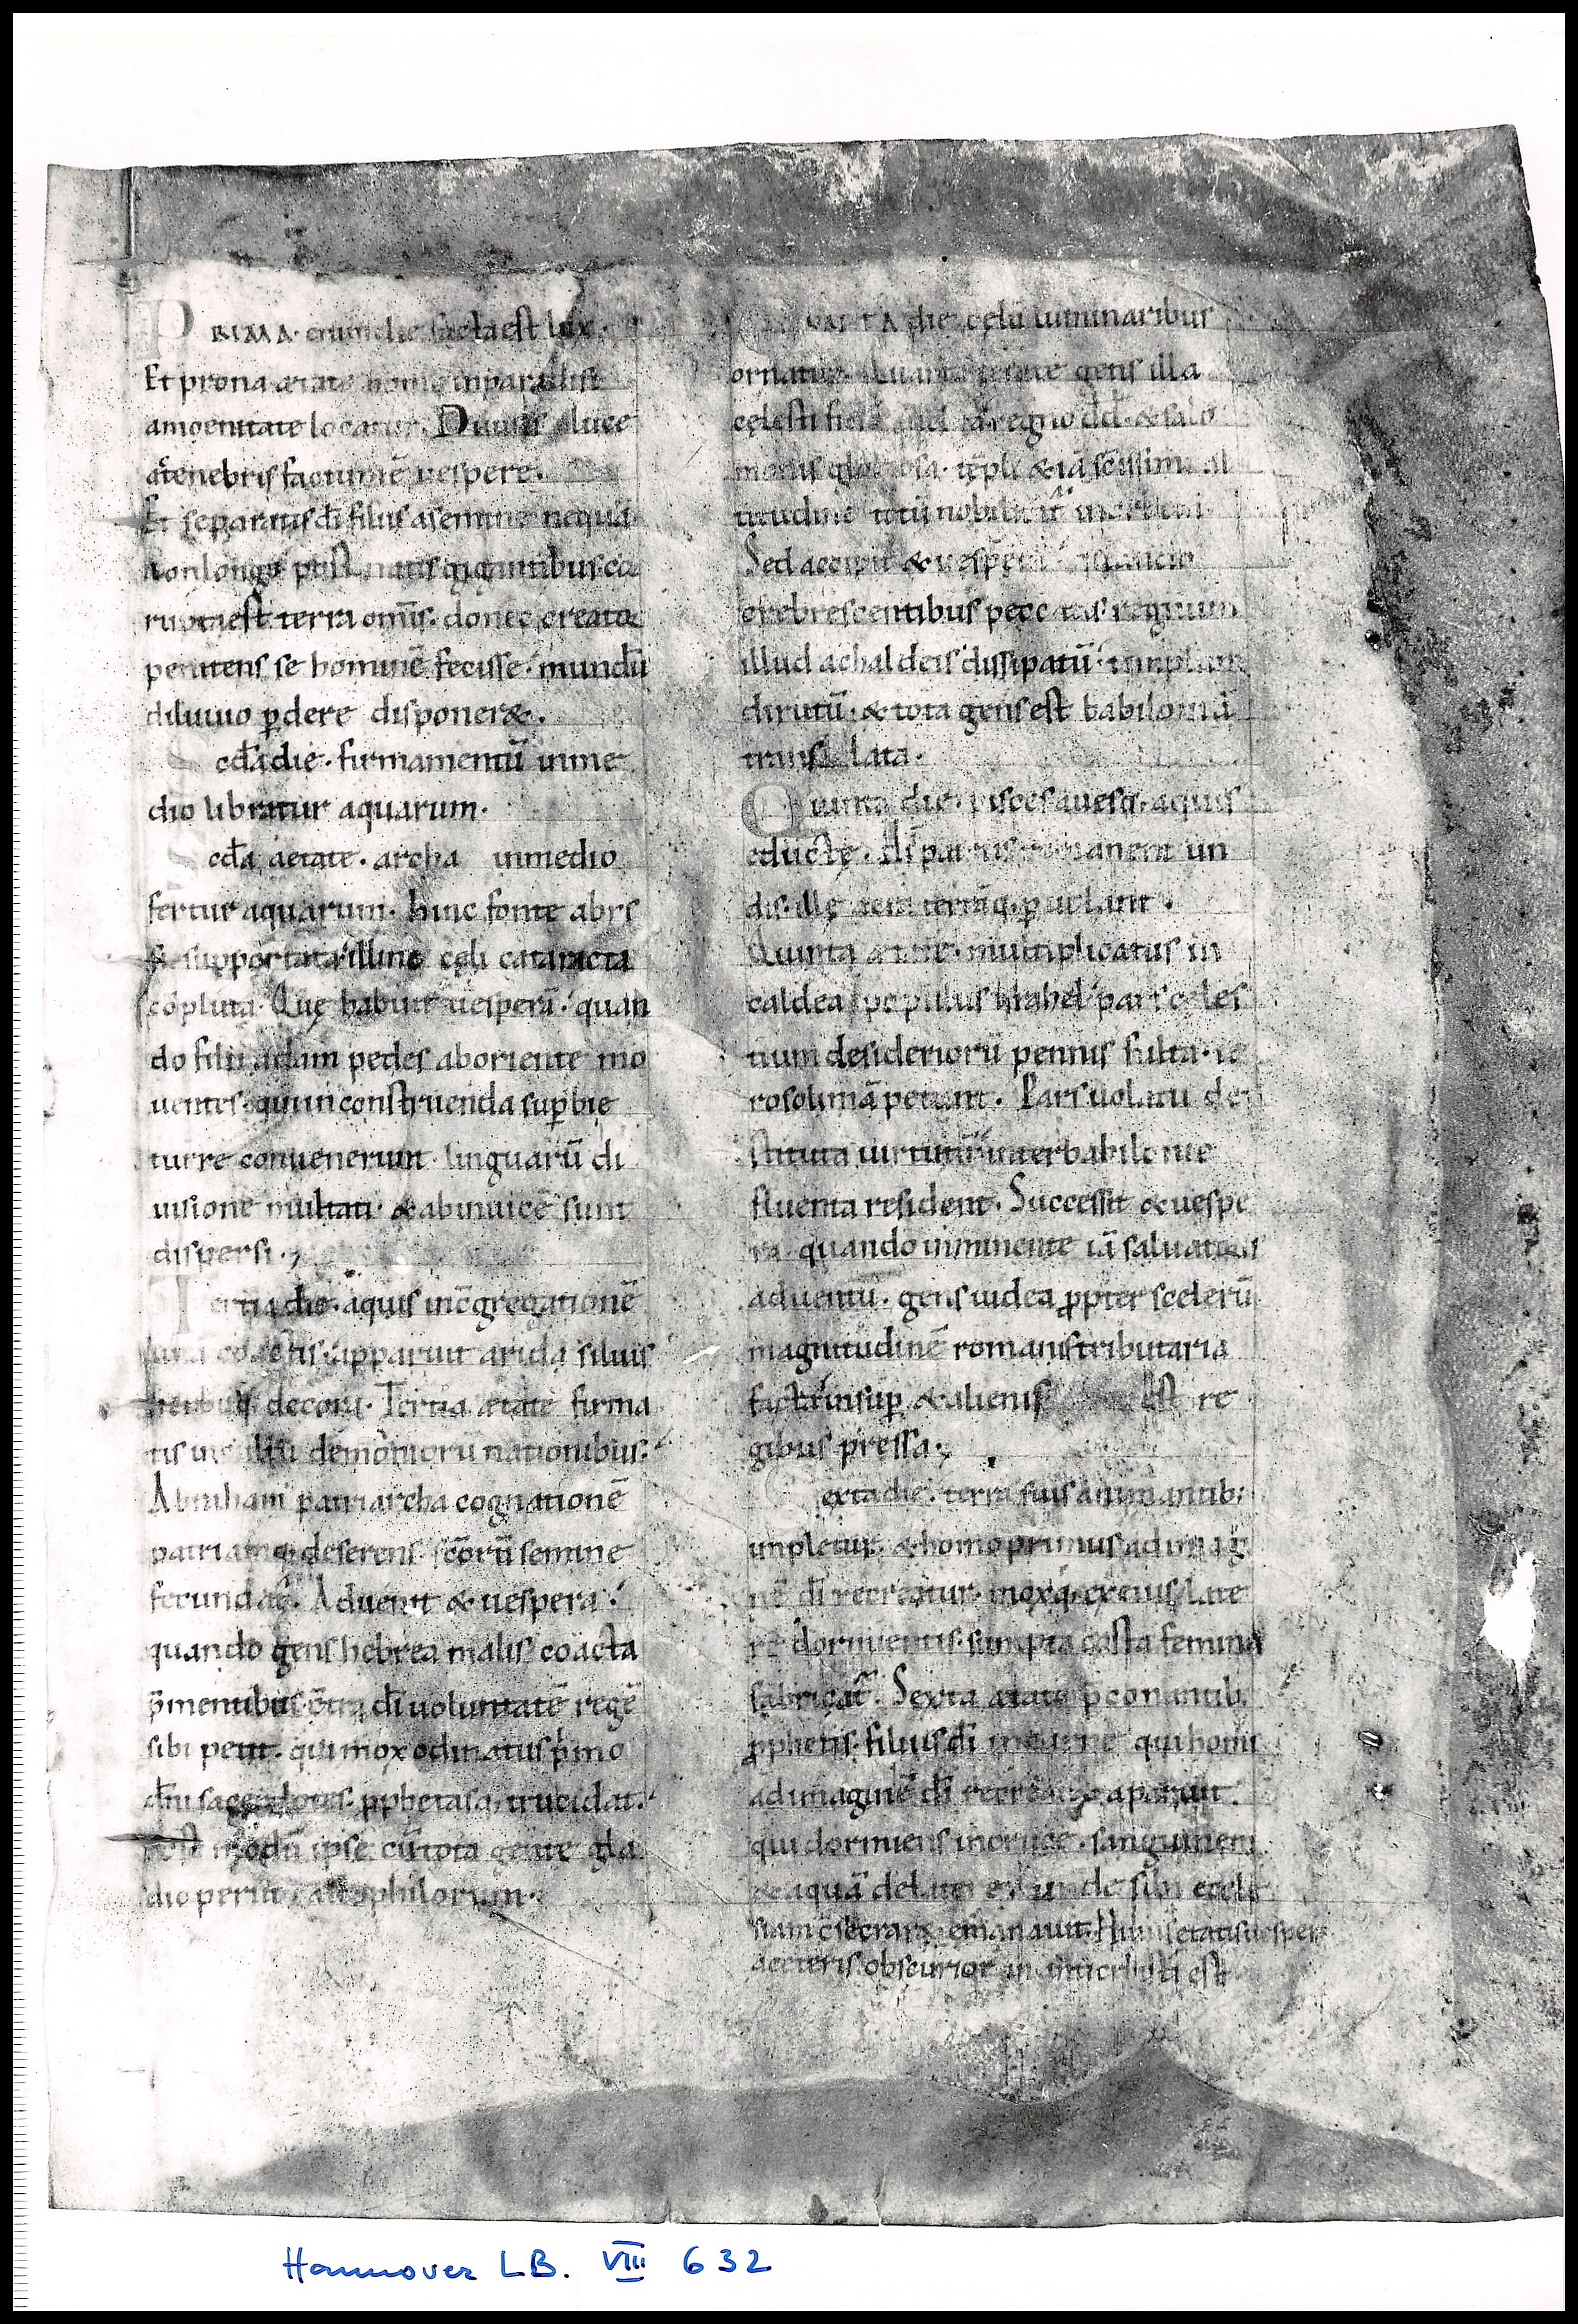 PRIMA enim die facta est lux.
Et prima aetate homo in paradisi
amoenitate locatur. Diuisis luce
a tenebris factum ē uespere.
Et separatis di filiis a semine nequā
non longe post natis gigantibus cor
rupta est terra omīs. donec creator
penitens se hominē fecisse. mundū
diluuio ꝑdere disponeret.
Scđa die. firmamentū in me
dio libratur aquarum.
Scđa aetate. archa in medio
fertur aquarum. hinc fonte abys
si supportata. illinc cęli cataracta
cōpluta. Quę habuit uesperā. quan
do filii adam pedes ab oriente mo
uentes. qui in construenda suꝑbię
turre conuenerunt. linguarū di
uisione multati. & ab inuicē sunt
dispersi.
Tertia die. aquis in cōgregationē
unā coactis. apparuit arida siluis
herbisq; decora. Tertia aetate firma
tis demonioru nationibus.
Abraham patriarcha cognationē
patriamq; deserens. scōrū semine
fecundat̄. Aduenit & uespera.
quando gens hebrea malis coacta
p̄mentibus. cōtra di uoluntatē regē
sibi petit. qui mox ordinatus p̄mo
dn̄i sacerdotes. ꝓphetasq; trucidat.
post modū ipse cū tota gente gla
dio periit allophilorum.
QVARTA die cęlū luminaribus
ornatur. Quarta aetate gens illa
cęlesti fide regno dd. & salo
monis gloriosa. tēpli & iā scissimi al
titudine totū nobilitat̄ in orbem.
Sed accipit & uesperā
crebrescentibus peccatis regnum
illud a chaldeis dissipatū. templum
dirutū. & tota gens est babiloniā
translata.
Quinta die. pisces auesq; aquis
eductę. Hi patriis remanent un
dis. illę terrāq; ꝑuolant.
Quinta aetate. multiplicatus in
caldea populus israhel. pars celes
tium desideriorū pennis fulta. ie
rosolimā petunt. Pars uolatu de
stituta uirtutū. inter babilonie
fluenta resident. Successit & uespe
ra. quando imminente iā saluatoris
aduentu. gens iudea ꝓpter scelerū
magnitudinē romanis tributaria
facta. insuꝑ & alienis est re
gibus pressa.
Sexta die. terra suis animantib;
impletur. & homo primus ad imagi
nē di recreatur. moxq; ex eius late
re dormientis. sumpta costa femina
fabricat̄. Sexta aetate p̄conantib;
ꝓphetis. filius di in carne qui homi
ad imaginē di recrearet apparuit.
qui dormiens in cruce. sanguinem
& aquā de latere. unde sibi eccle
siam cōsecraret. emanauit. Huius etatis uesper
a ceteris obscurior in anticristi est